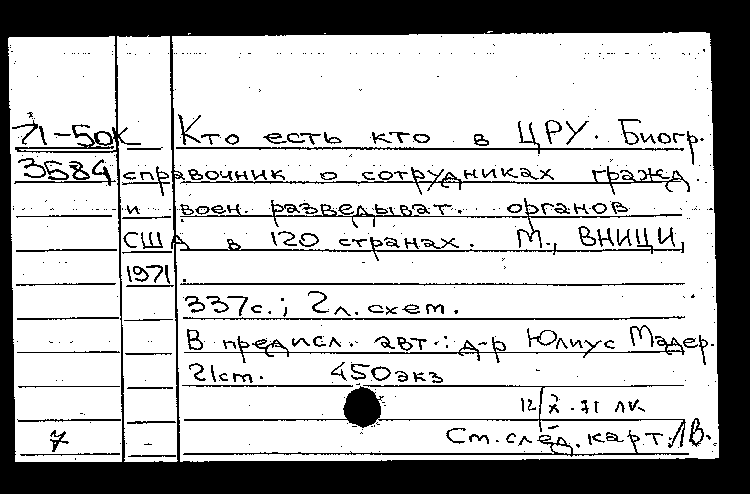 71-50К Кто есть кто в ЦРУ. Биогр.
3584 справочник о сотрудниках гражд.
и воен. разведыват. органов
США в 120 странах. М., ВНИЦИ,
1971.
337с.; 2л. схем.
В предисл. авт.: д-р Юлиус Мадер.
21ст. 450экз
12/X-71 ЛК
7 См. след. карт. ЛВ.